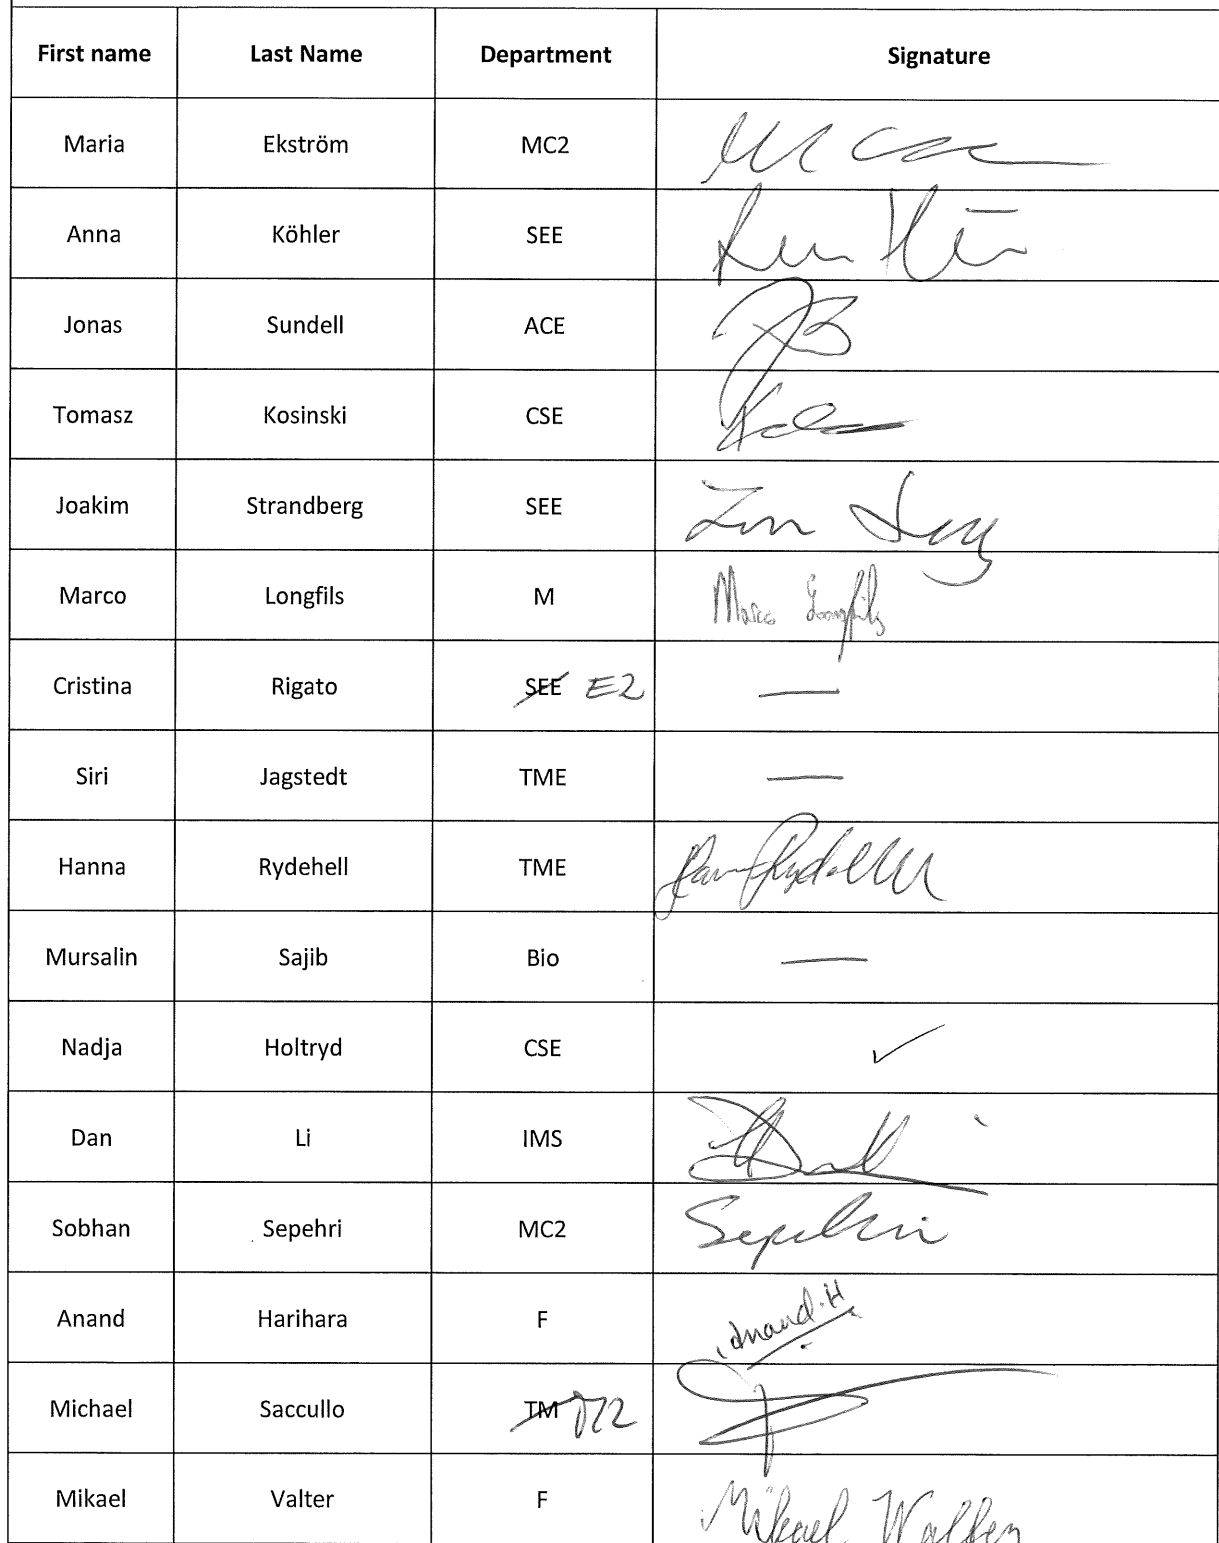 First name Last Name Department Signature
Maria Ekström MC2
Anna Köhler SEE
Jonas Sundell ACE
Tomasz Kosinski CSE
Joakim Strandberg SEE
Marco Longfils M Marco Longfils
Cristina Rigato SEE E2 —
Siri Jagstedt TME —
Hanna Rydehell TME
Mursalin Sajib Bio —
Nadja Holtryd CSE ✓
Dan Li IMS
Sobhan Sepehri MC2 Sepehri
Anand Harihara F Anand.H
Michael Saccullo TM
Mikael Valter F Mikael Valter